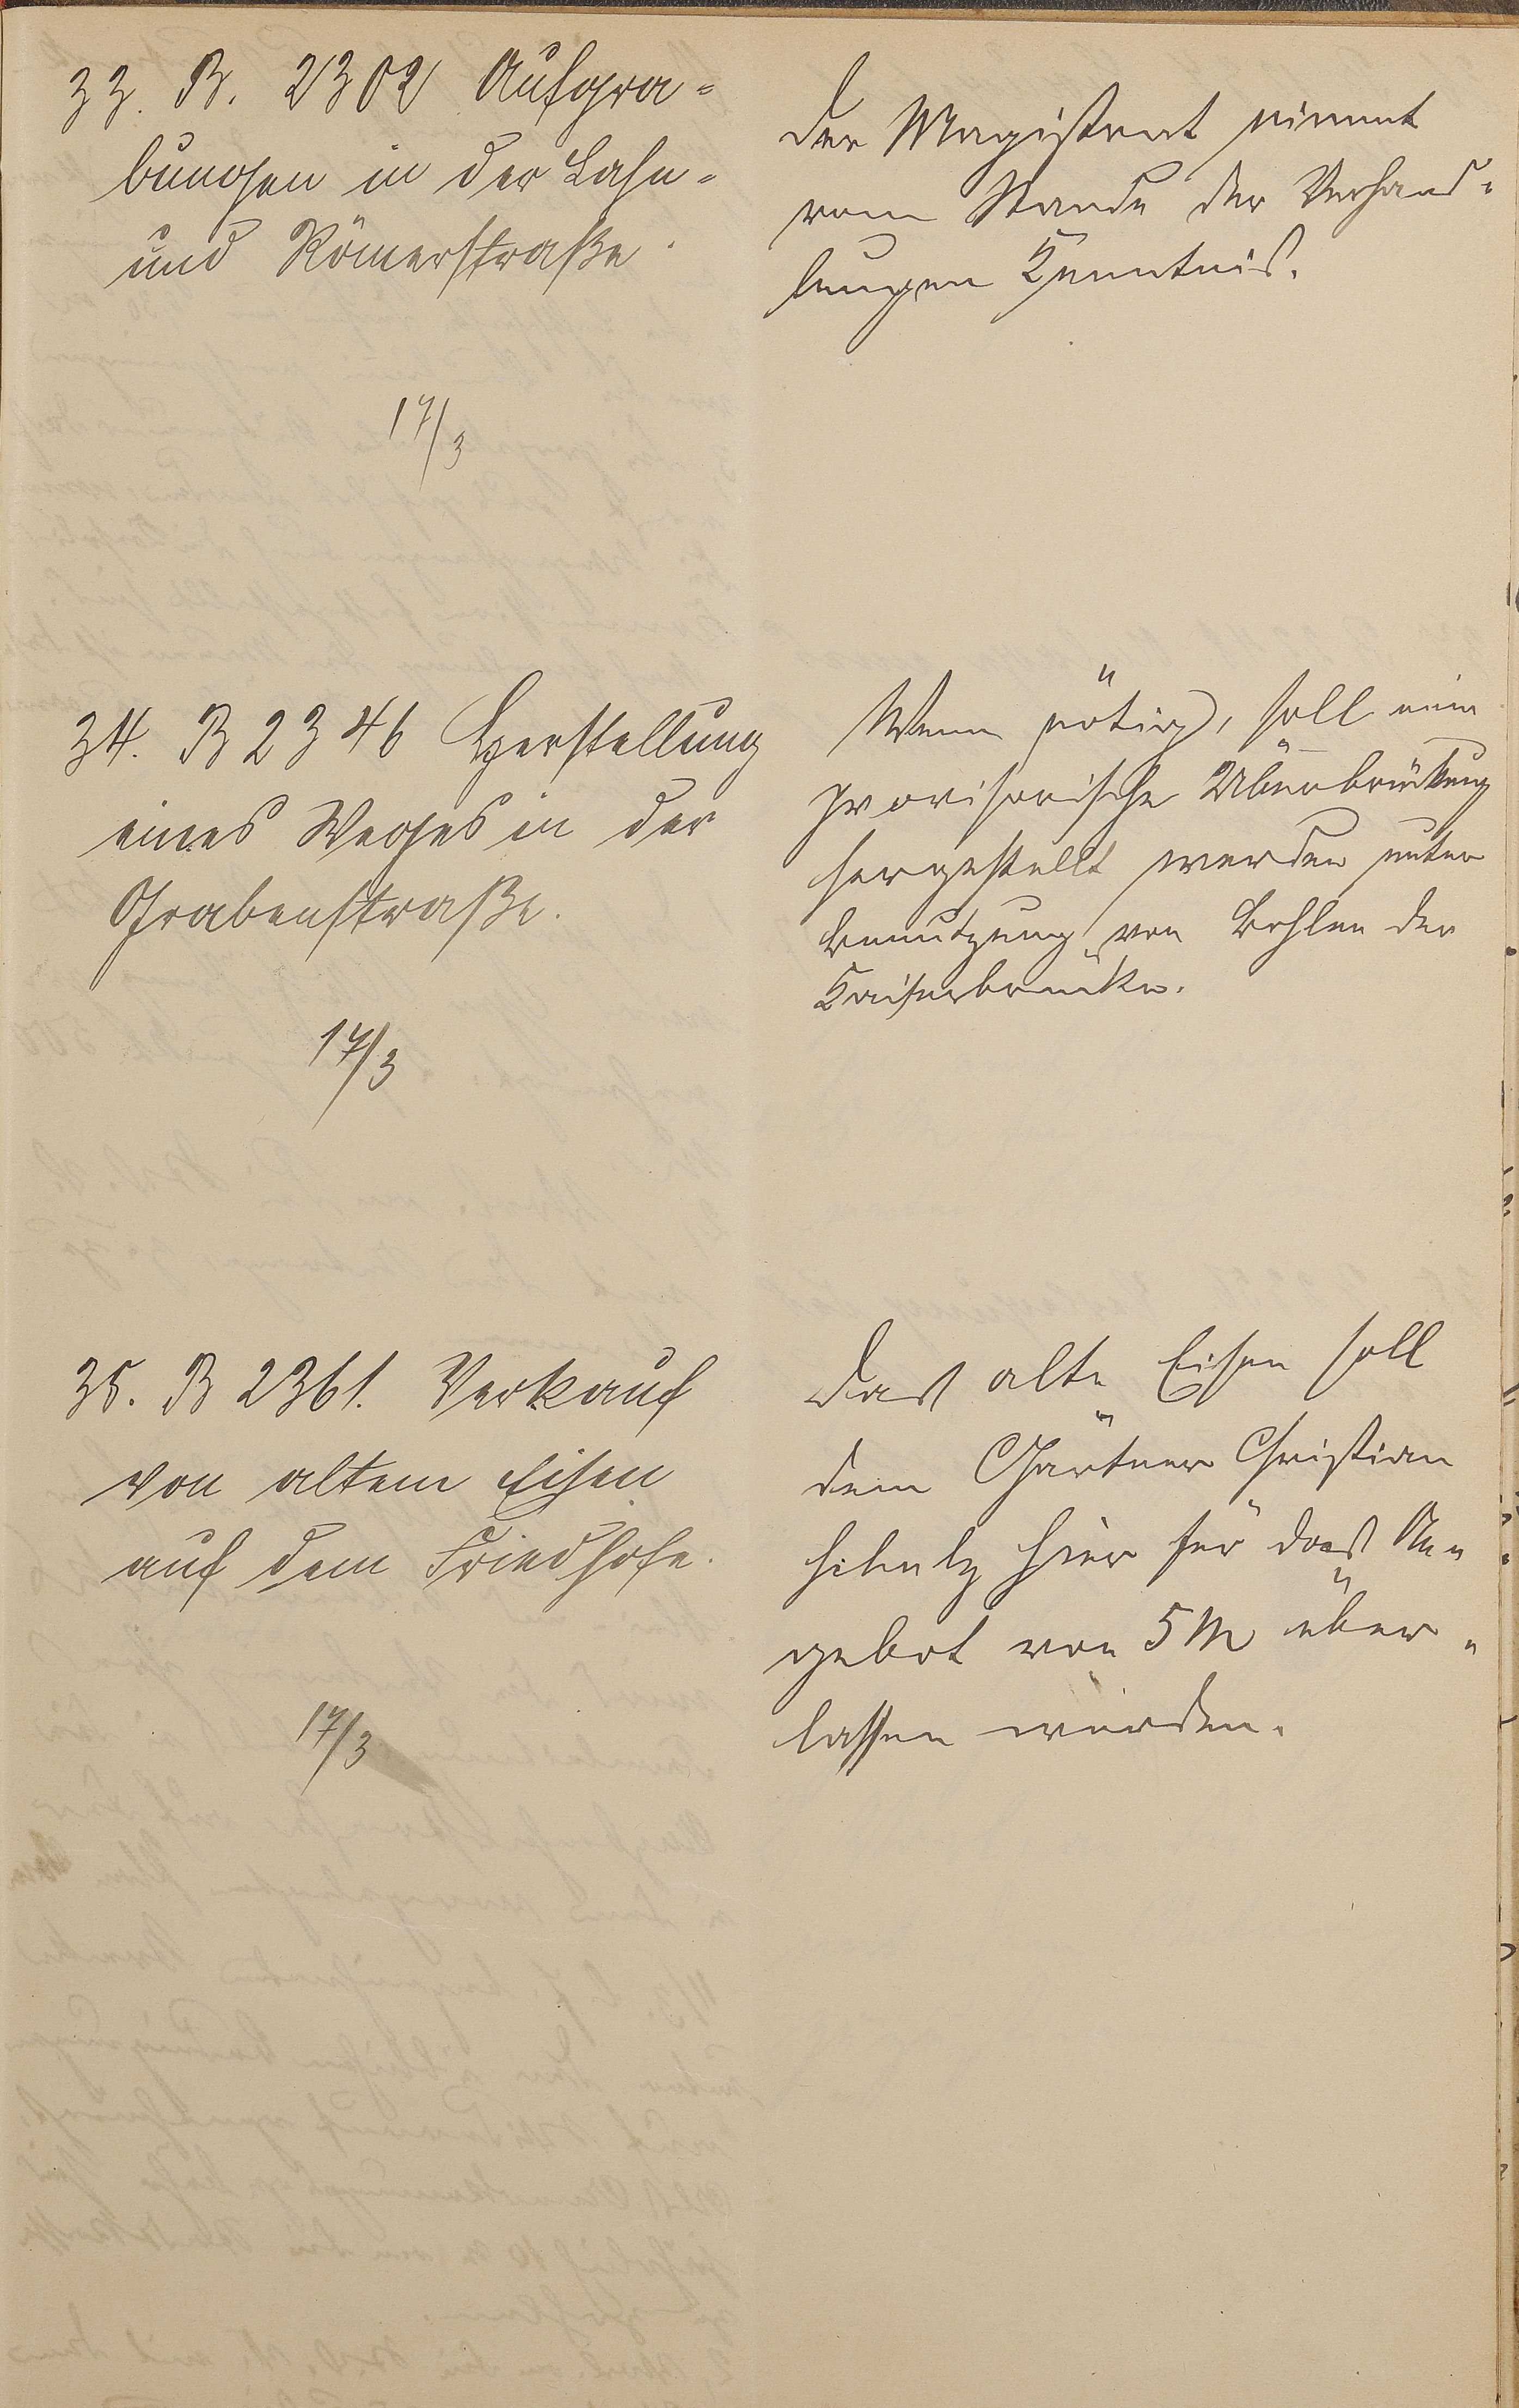 33. B. 2302 Aufgra=
bungen in der Lahn=
und Römerstraße.
17/3
Der Magistrat nimmt
vom Stande der Verhand=
lungen Kenntnis.
34. B 2346 Herstellung
eines Weges in der
Grabenstraße.
17/3
Wenn nötig, soll eine
provisorische Überbrückung
hergestellt werden unter
Benutzung von Bohlen der
Kaiserbrücke.
35. B 2361. Verkauf
von altem Eisen
auf dem Friedhofe.
17/3
Das alte Eisen soll
dem Gärtner Christian
Schulz hier für das An=
gebot von 5 M über=
lassen werden.